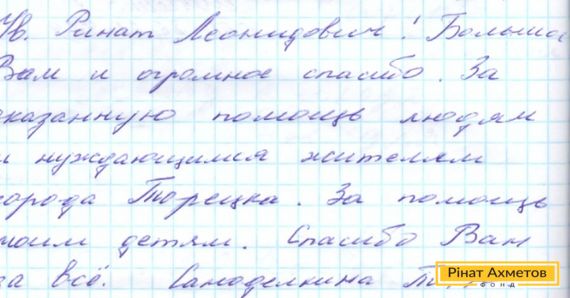 Ув. Ринат Леонидович! Большое
Вам и огромное спасибо. За
оказанную помощь людям
и нуждающимся жителям
города Торецка. За помощь
моим детям. Спасибо Вам
за всё. Самоделкина
Рінат Ахметов
ФОНД